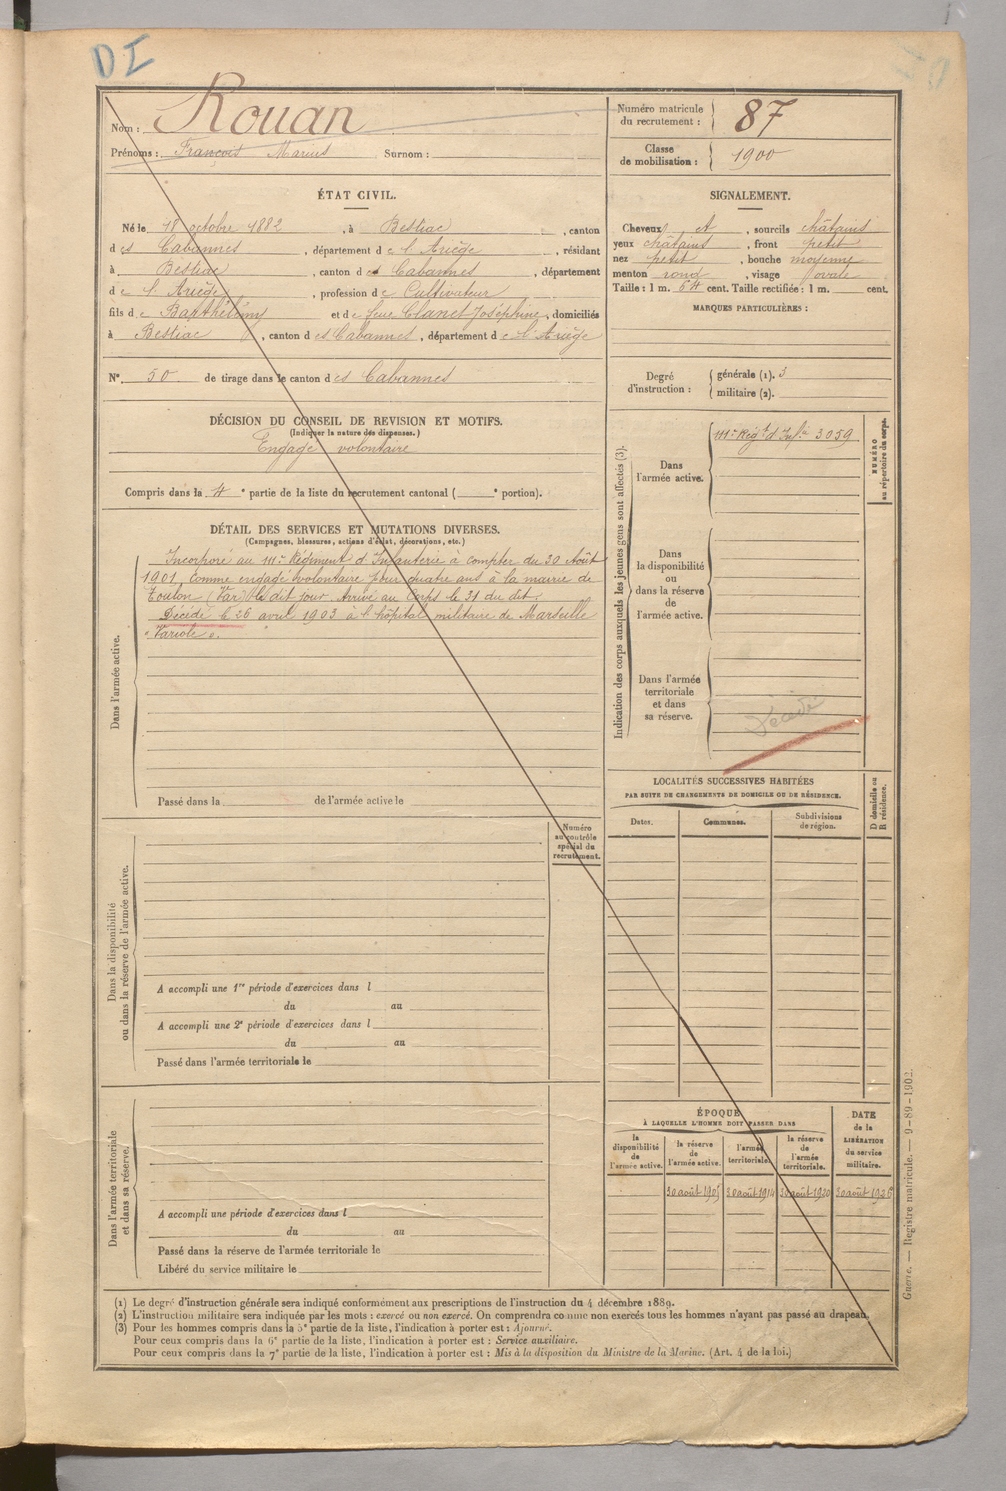 DI
Nom : Rouan
Prénoms : François Marius Surnom :
Numéro matricule du recrutement : 87
Classe de mobilisation : 1900
ÉTAT CIVIL.
Né le 18 octobre 1882, à Bestiac, canton
d es Cabannes, département d e l'Ariège, résidant
à Bestiac, canton d es Cabannes, département
d e l'Ariège, profession d e Cultivateur
fils d e Barthélémy et d e feue Clanet Joséphine, domiciliés
à Bestiac, canton d es Cabannes, département d e l'Ariège
N° 50 de tirage dans le canton d es Cabannes
SIGNALEMENT.
Cheveux et, sourcils châtains
yeux châtains, front petit
nez petit, bouche moyenne
menton rond, visage ovale
Taille : 1 m. 64 cent. Taille rectifiée : 1 m. cent.
MARQUES PARTICULIÈRES :
Degré d'instruction :
générale (1). 3
militaire (2).
DÉCISION DU CONSEIL DE REVISION ET MOTIFS.
(Indiquer la nature des dispenses.)
Engagé volontaire
Compris dans la 4e partie de la liste du recrutement cantonal ( e portion).
DÉTAIL DES SERVICES ET MUTATIONS DIVERSES.
(Campagnes, blessures, actions d'éclat, décorations, etc.)
Dans l'armée active.
Incorporé au 111e Régiment d'Infanterie à compter du 30 Août
1901, comme engagé volontaire pour quatre ans à la mairie de
Toulon (Var) le dit jour. Arrivé au Corps le 31 du dit.
Décédé le 26 avril 1903 à l'hôpital militaire de Marseille
"Variole".
Passé dans la de l'armée active le
Indication des corps auxquels les jeunes gens sont affectés (3).
Dans l'armée active.
111e Régt d'Infie 3059
NUMÉRO au répertoire du corps.
Dans la disponibilité ou dans la réserve de l'armée active.
Dans l'armée territoriale et dans sa réserve.
Décédé
LOCALITÉS SUCCESSIVES HABITÉES
PAR SUITE DE CHANGEMENTS DE DOMICILE OU DE RÉSIDENCE.
Dates.
Communes.
Subdivisions de région.
D domicile ou R résidence.
Numéro au contrôle spécial du recrutement.
Dans la disponibilité ou dans la réserve de l'armée active.
A accompli une 1re période d'exercices dans l
du au
A accompli une 2e période d'exercices dans l
du au
Passé dans l'armée territoriale le
Dans l'armée territoriale et dans sa réserve.
A accompli une période d'exercices dans l
du au
Passé dans la réserve de l'armée territoriale le
Libéré du service militaire le
ÉPOQUE
À LAQUELLE L'HOMME DOIT PASSER DANS
la disponibilité de l'armée active.
la réserve de l'armée active.
l'armée territoriale.
la réserve de l'armée territoriale.
DATE de la LIBÉRATION du service militaire.
30 août 1905 30 août 1914 30 août 1920 30 août 1926
(1) Le degré d'instruction générale sera indiqué conformément aux prescriptions de l'instruction du 4 décembre 1889.
(2) L'instruction militaire sera indiquée par les mots : exercé ou non exercé. On comprendra comme non exercés tous les hommes n'ayant pas passé au drapeau.
(3) Pour les hommes compris dans la 5e partie de la liste, l'indication à porter est : Ajourné.
Pour ceux compris dans la 6e partie de la liste, l'indication à porter est : Service auxiliaire.
Pour ceux compris dans la 7e partie de la liste, l'indication à porter est : Mis à la disposition du Ministre de la Marine. (Art. 4 de la loi.)
Guerre. — Registre matricule. — 9-89-1902.